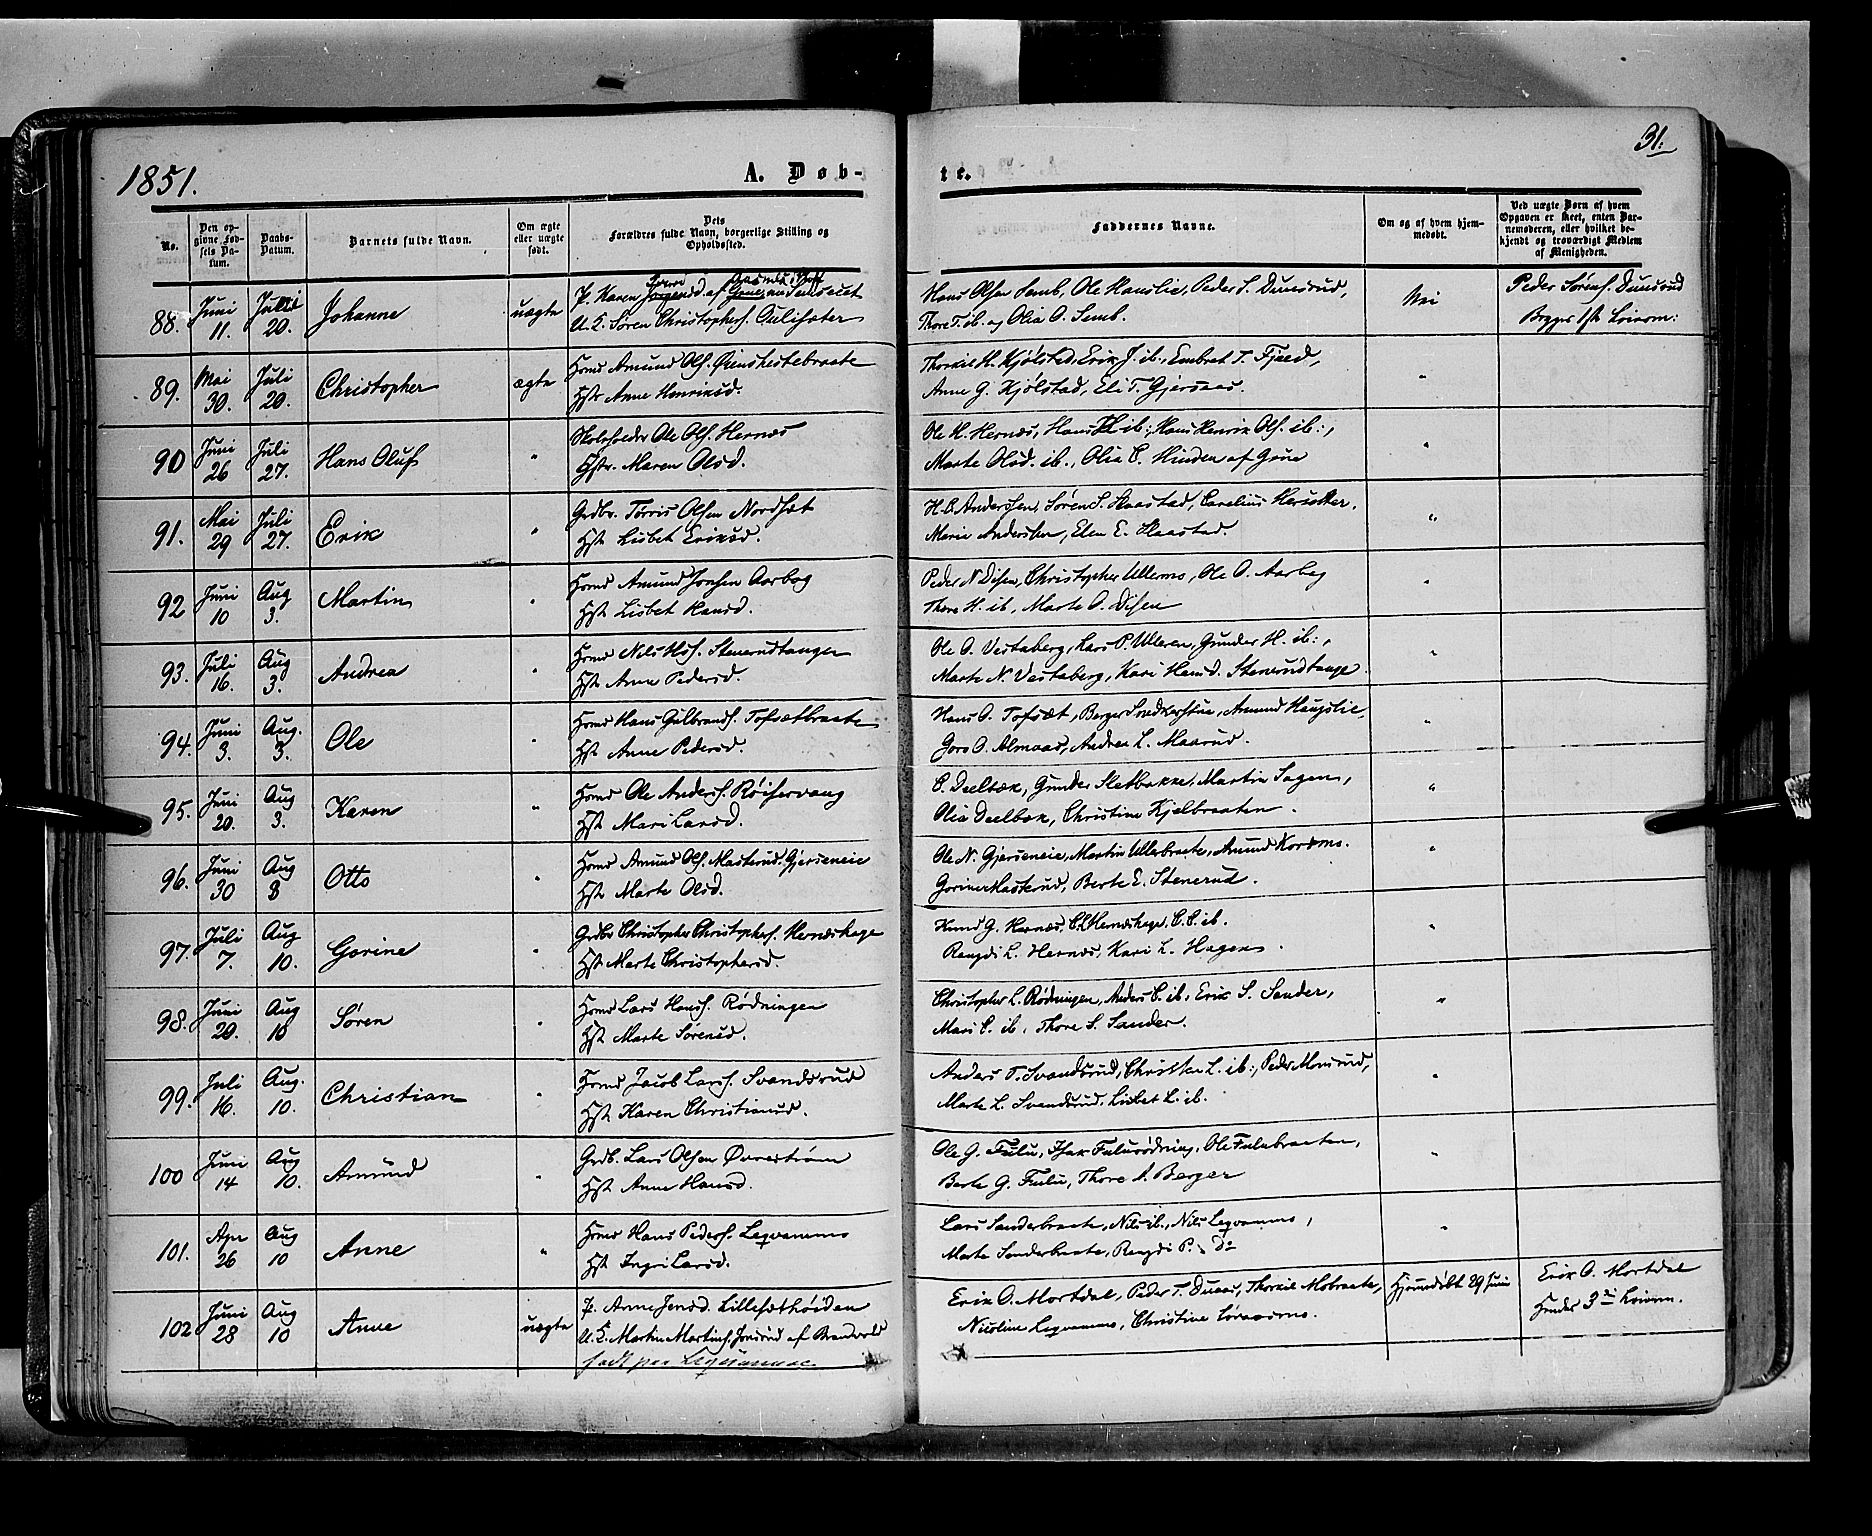 1851.
A. Døb-
te.
31.
No.
Den op-
givne Fød-
sels Da-
tum.
Daabs-
Datum.
Barnets fulde Navn.
Om ægte
eller uægte
født.
Dets
Forældres fulde Navn, borgerlige Stilling og
Opholdssted.
Faddernes Navne.
Om og af hvem hjem-
medøbt.
Ved uægte Børn af hvem
Opgaven er skeet, enten Bar-
nemoderen, eller hvilket be-
kjendt og troværdigt Medlem
af Menigheden.
88. Juni 11. Juli 20. Johanne uægte P. Karen
U. K. Søren Christophers.
Hans Olsen Semb, Ole Hanslie, Peder S. Dunsrud,
Thore T. ib. og Olia O. Semb.
Nei
Peder Sørens. Dunsrud
89. Mai 30. Juli 20. Christopher ægte Hsmd Amund Ols.
Hst. Anne Henriksd.
Thorkil H. Kjølstad, Erik J. ib., Embret T. Fjæld,
Anne G. Kjølstad, Eli T. Gjersaas.
"
90 Juni 26 Juli 27. Hans Oluf " Skoleholder Ole Ols. Hernæs
Hstr. Maren Olsd.
Ole H. Hernæs, Hans H. ib., Hans Henrik Ols. ib.,
Marte Olsd. ib., Olia C. Hinden af Grue
"
91. Mai 29 Juli 27. Erik " Grdbr. Torris Olsen Nordsæt
Hst. Lisbet Eriksd.
H. C. Andersen, Søren S. Haastad,
Marie Andersen, Elen E. Haastad.
"
92 Juni 10 Aug 3. Martin " Hsmd Amund Jonsen Aarbog
Hst. Lisbet Hansd.
Peder N Disen, Christopher Ullerns, Ole O. Aarbog
Thore H. ib, Marte O. Disen
"
93. Juli 16. Aug 3. Andrea " Hsmd Nils Hs. Stenerudtangen
Hst. Anne Pedersd.
Ole O. Vestaberg, Lars P. Ulleren, Gunder H. ib.,
Marte N. Vestaberg, Kari Hansd. Stenerudtange
"
94. Juni 3. Aug. 3. Ole " Hsmd Hans Gulbrands. Tofsætbraate
Hst. Anne Pedersd.
Hans O. Tofsæt, Berger Snedkerstue, Amund Haugslie,
Goro O. Almaas, Andrea L. Maarud.
"
95. Juni 20. Aug 3. Karen " Hsmd Ole Anders. Røiservang
Hst. Mari Larsd.
C. Deelbæk, Gunder Sletbakke, Martin Sagen,
Olia Deelbæk, Christine Kjelbraaten.
"
96. Juni 30 Aug 3 Otto " Hsmd Amund Ols. Masterud Gjerseneie
Hst. Marte Olsd.
Ole N. Gjerseneie, Martin Ullerbraate, Amund
Gorine Masterud, Berte E. Stenerud.
"
97. Juli 7. Aug 10. Gorine " Grdbr Christopher Christophers. Hernæshage
Hst Marte Christophersd.
Knud G. Hernæs, Hernæshage, C. C. ib.
Rangdi L. Hernæs, Kari L. Hagen.
"
98. Juni 20. Aug 10 Søren " Hsmd Lars Hans. Rødningen
Hst Marte Sørensd.
Christopher L. Rødningen, Anders C. ib., Erik S. Sander,
Mari C. ib., Thore S. Sander.
"
99. Juli 16. Aug. 10. Christian " Hsmd Jacob Lars. Svandsrud
Hst Karen Christiansd.
Anders T. Svandsrud, Christen L. ib., Peder Monsrud,
Marte L. Svandsrud, Lisbet L. ib.
"
100 Juni 14 Aug 10. Amund " Grdb. Lars Olsen Øverstrøm
Hst Anne Hansd.
Ole G. Fulu, Isak Fulurødning, Ole Fulubraaten,
Berte G. Fulu, Thore A. Berger
"
101. Apr 26 Aug 10 Anne " Hsmd Hans Peders. Leqvamme
Hst Ingri Larsd.
Lars Sanderbraate, Nils ib., Nils Leqvamme,
Marte Sanderbraate, Rangdi P. do
"
102 Juni 28 Aug 10 Anne uægte P. Anne Jensd. Lillesæthøiden
U. K. Martin Martins. Jonsrud af Brandvold
født paa Leqvamme
Erik O. Mortdal, Peder T. Duaas, Thorkil Mobraate,
Nicoline Leqvamme, Christine
Hjemdøbt 29 Juni
Erik O. Mortdal